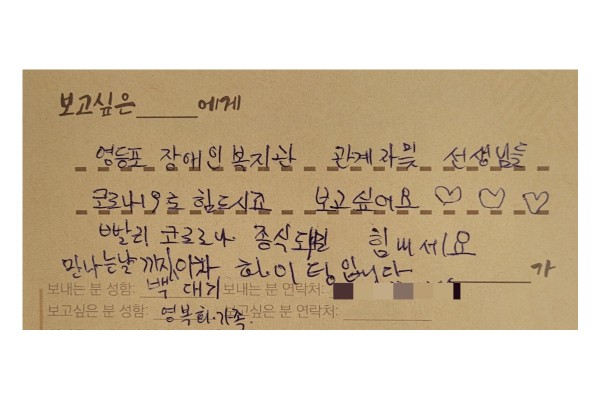 보고싶은 ____ 에게
영등포 장애인복지관 관계자및 선생님들
코로나19로 힘드시죠 보고싶어요 ♡ ♡ ♡
빨리 코로나 종식되면 힘내세요
만나는날까지 화이팅입니다 가
보내는 분 성함: 백 대기 보내는 분 연락처:
보고싶은 분 성함: 영복회·가족. 보고싶은 분 연락처: